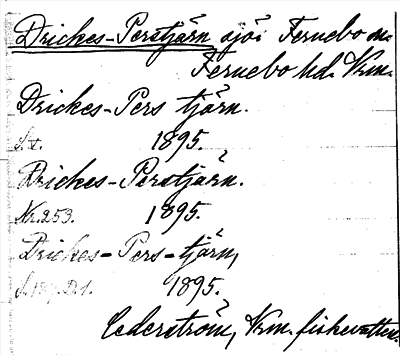 Drickes-Perstjärn sjö i Fernebo sn.
Fernebo hd. Vrm.
Drickes-Pers tjärn.
S. V. 1895.
Drickes-Perstjärn.
Nr. 253. 1895.
Drickes-Pers-tjärn,
1895.
Cederström, Vrm. fiskevatten.